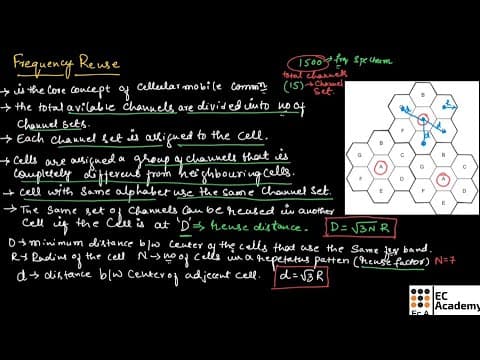 Frequency Reuse
1500 → freq spectrum
total channels
(15) → Channel
Set.
→ is the Core concept of Cellular mobile commn
→ the total avilable channels are divided into no of
Channel Sets.
→ Each channel set is assigned to the Cell.
→ Cells are assigned a group of channels that is
Completely different from neighbouring cells.
→ Cell with Same alphabet use the Same Channel Set.
→ The Same set of Channels can be reused in another
Cell if the Cell is at 'D' → reuse distance. D = √3N R
D → minimum distance b/w center of the cells that use the Same freq band.
R → Radius of the cell N → no of cells in a repetatus patten (reuse factor) N=7
d → distance b/w Center of adjecent cell. d = √3 R
B
G
C
A
F
D
E
B
B
G
C
G
C
A
A
F
D
F
D
E
E
EC
Academy